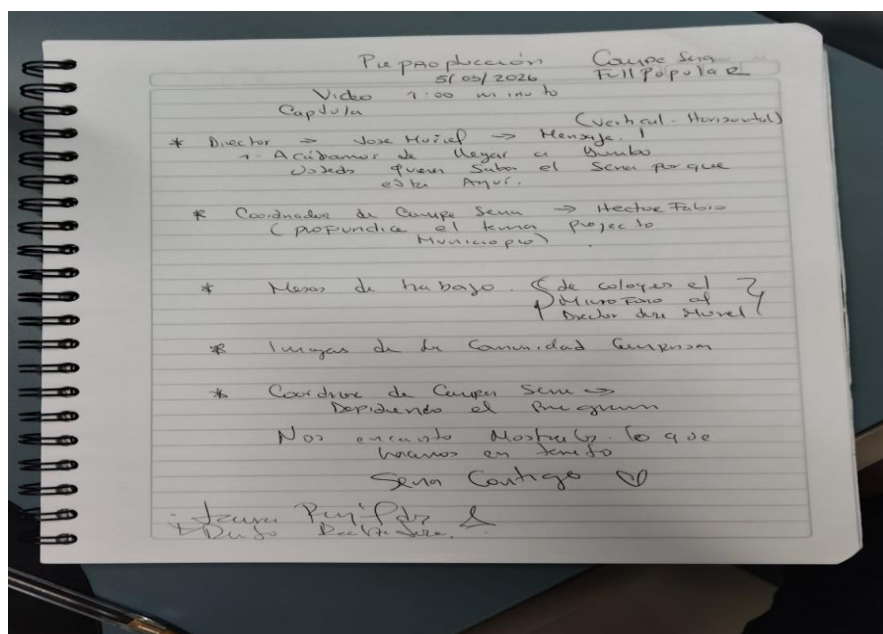 Preproducción Campe Sena
5/05/2026 Full Popular
Video 1:00 minuto
Capsula
(Vertical - Horizontal)
* Director → Jose Muriel → Mensaje. 1
1- Acabamos de llegar a Yumbo
Ustedes quieren saber el Sena por que
esta Aquí.
* Coordinador de Campe Sena → Hector Fabio
(profundice el tema proyecto
Municipio)
* Mesas de trabajo. { de el }
Microfono al
Director Jose Muriel
* Imagas de la Comunidad Campesina
* de Campe Sena →
el Programa
Nos encanto lo que
hacemos en
Sena Contigo ♡